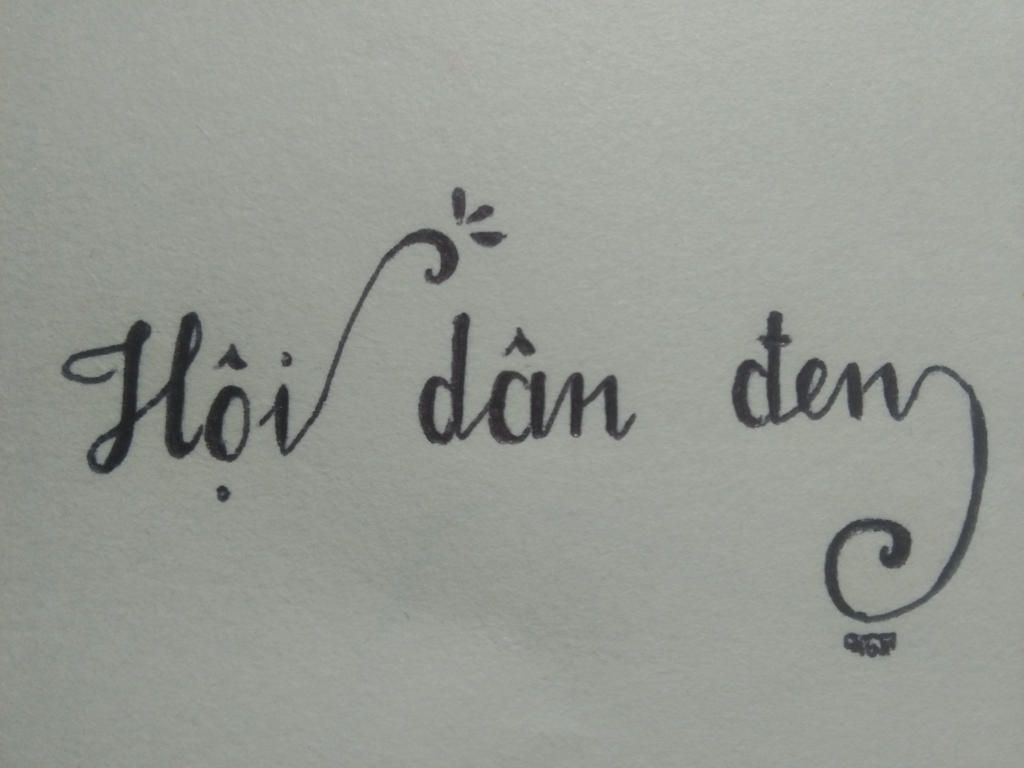 Hội dân đen